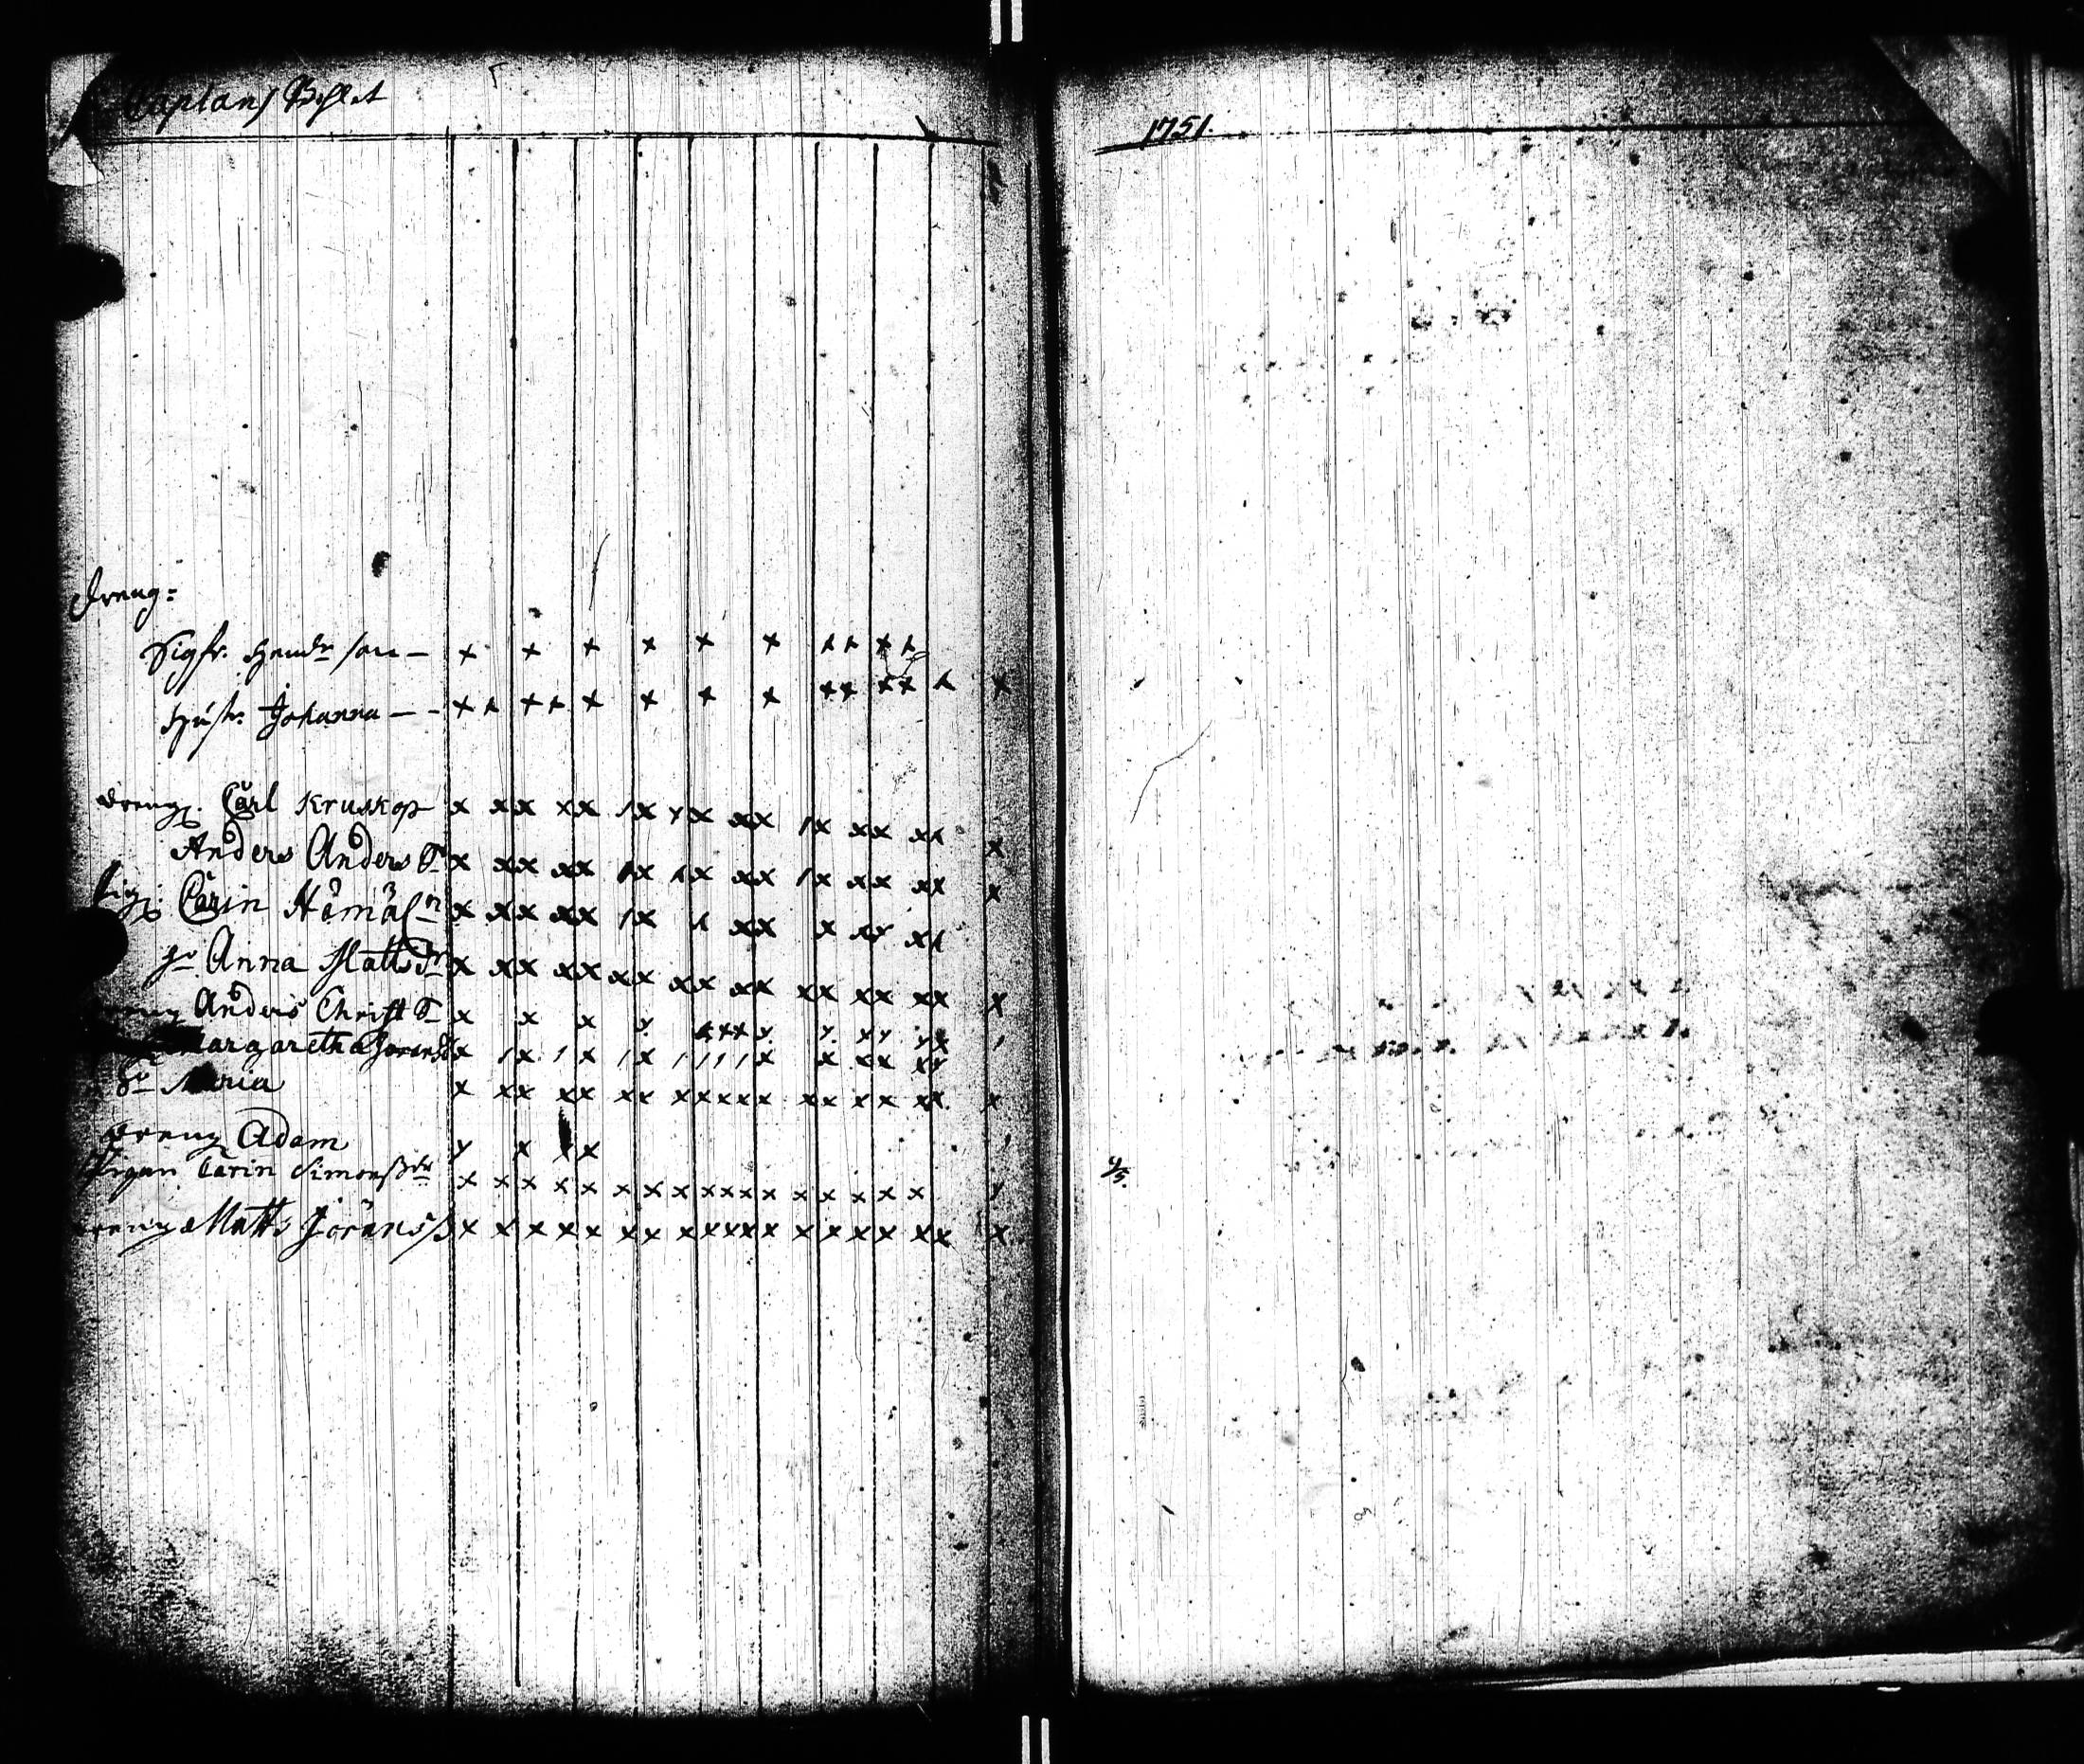 Caplans Bohlet
1751.
Dreng:
Sigfr. Hendr son — x x x x x x x x x x
Hustr. Johanna — - x x x x x x x x x x x x x x
Dreng. Carl Kruskop x xx xx 1x xx xx 1x xx xx x
Anders Anders S. x xx xx 1x xx xx 1x xx xx x
Pig: Carin x xx xx 1x x xx x xx xx
Anna Matts Dr x xx xx xx xx xx xx xx xx x
Anders Christ S. x x x x x x x x x x x x x 1
Margaretha Jorans x 1 x 1 x 1 x 1 1 1 1 x x x x x x
Do Maria x xx xx xx x x x x x xx xx xx x
Dreng Adam x x x x
Pigan Carin Simons dr x x x x x x x x x x x x x x x x x x x
4/5.
Dreng Matts Jörans ß x x x x x x x x x x x x x x x x x x x x